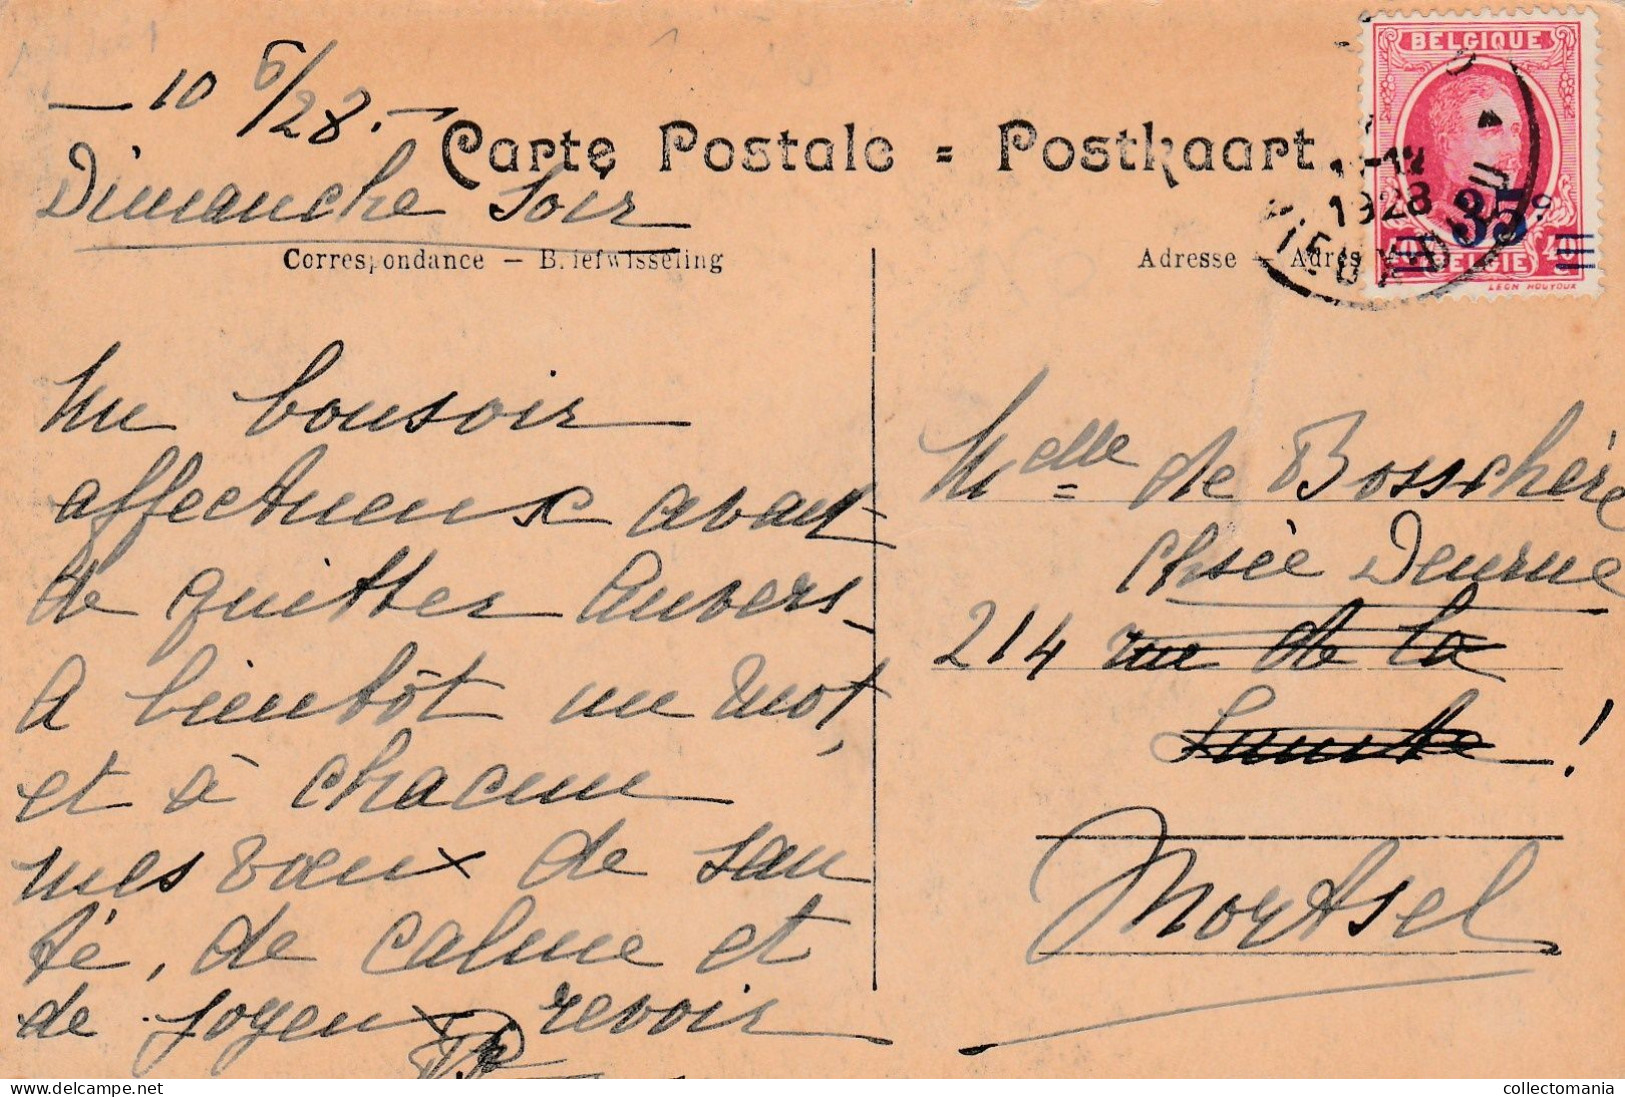 — 10 6/28. —
Dimanche soir
Carte Postale = Postkaart
Correspondance — Briefwisseling
Adresse — Adres
BELGIQUE
35c
BELGIË
LEON HOUYOUX
11-12
1928
VIEUX-DIEU
Un bonsoir
affectueux avant
de quitter Anvers_
A bientôt un mot,
et à chacune
mes vœux de san
té, de calme et
de joyeux revoir
Melle de Bosschère
Chsée Deurne
214 rue de la
Limite !
Mortsel
collectomania